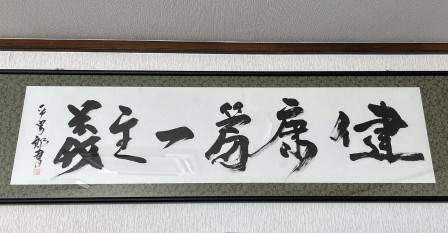 健康第一主義